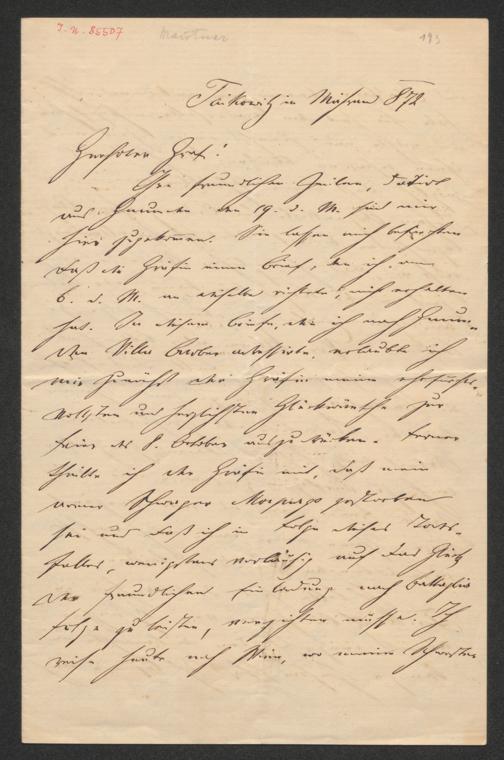 J. N. 85507
193
Taikowitz in Mähren 872
Verehrter Graf!
Ihre freundlichen Zeilen, datirt
aus Gmunden den 19. d. M. sind mir
hier zugekommen. Sie lassen mich befürchten
daß die Gräfin einen Brief, den ich am
6. d. M. an dieselbe richtete, nicht erhalten
hat. In diesem Briefe, den ich nach Gmun-
den Villa adressirte, erlaubte ich
mir zunächst der Gräfin meine ehrfurchts-
vollsten und herzlichsten Glückwünsche zur
Feier des 8. October auszudrücken. Ferner
theilte ich der Gräfin mit, daß mein
armer Schwager Morpurgo gestorben
sei und daß ich in Folge dieses Todes-
falles, wenigstens vorläufig auf das Glück
der freundlichen Einladung nach Battaglia
Folge zu leisten, verzichten müsse. Ich
reise heute nach Wien, wo meine Schwester